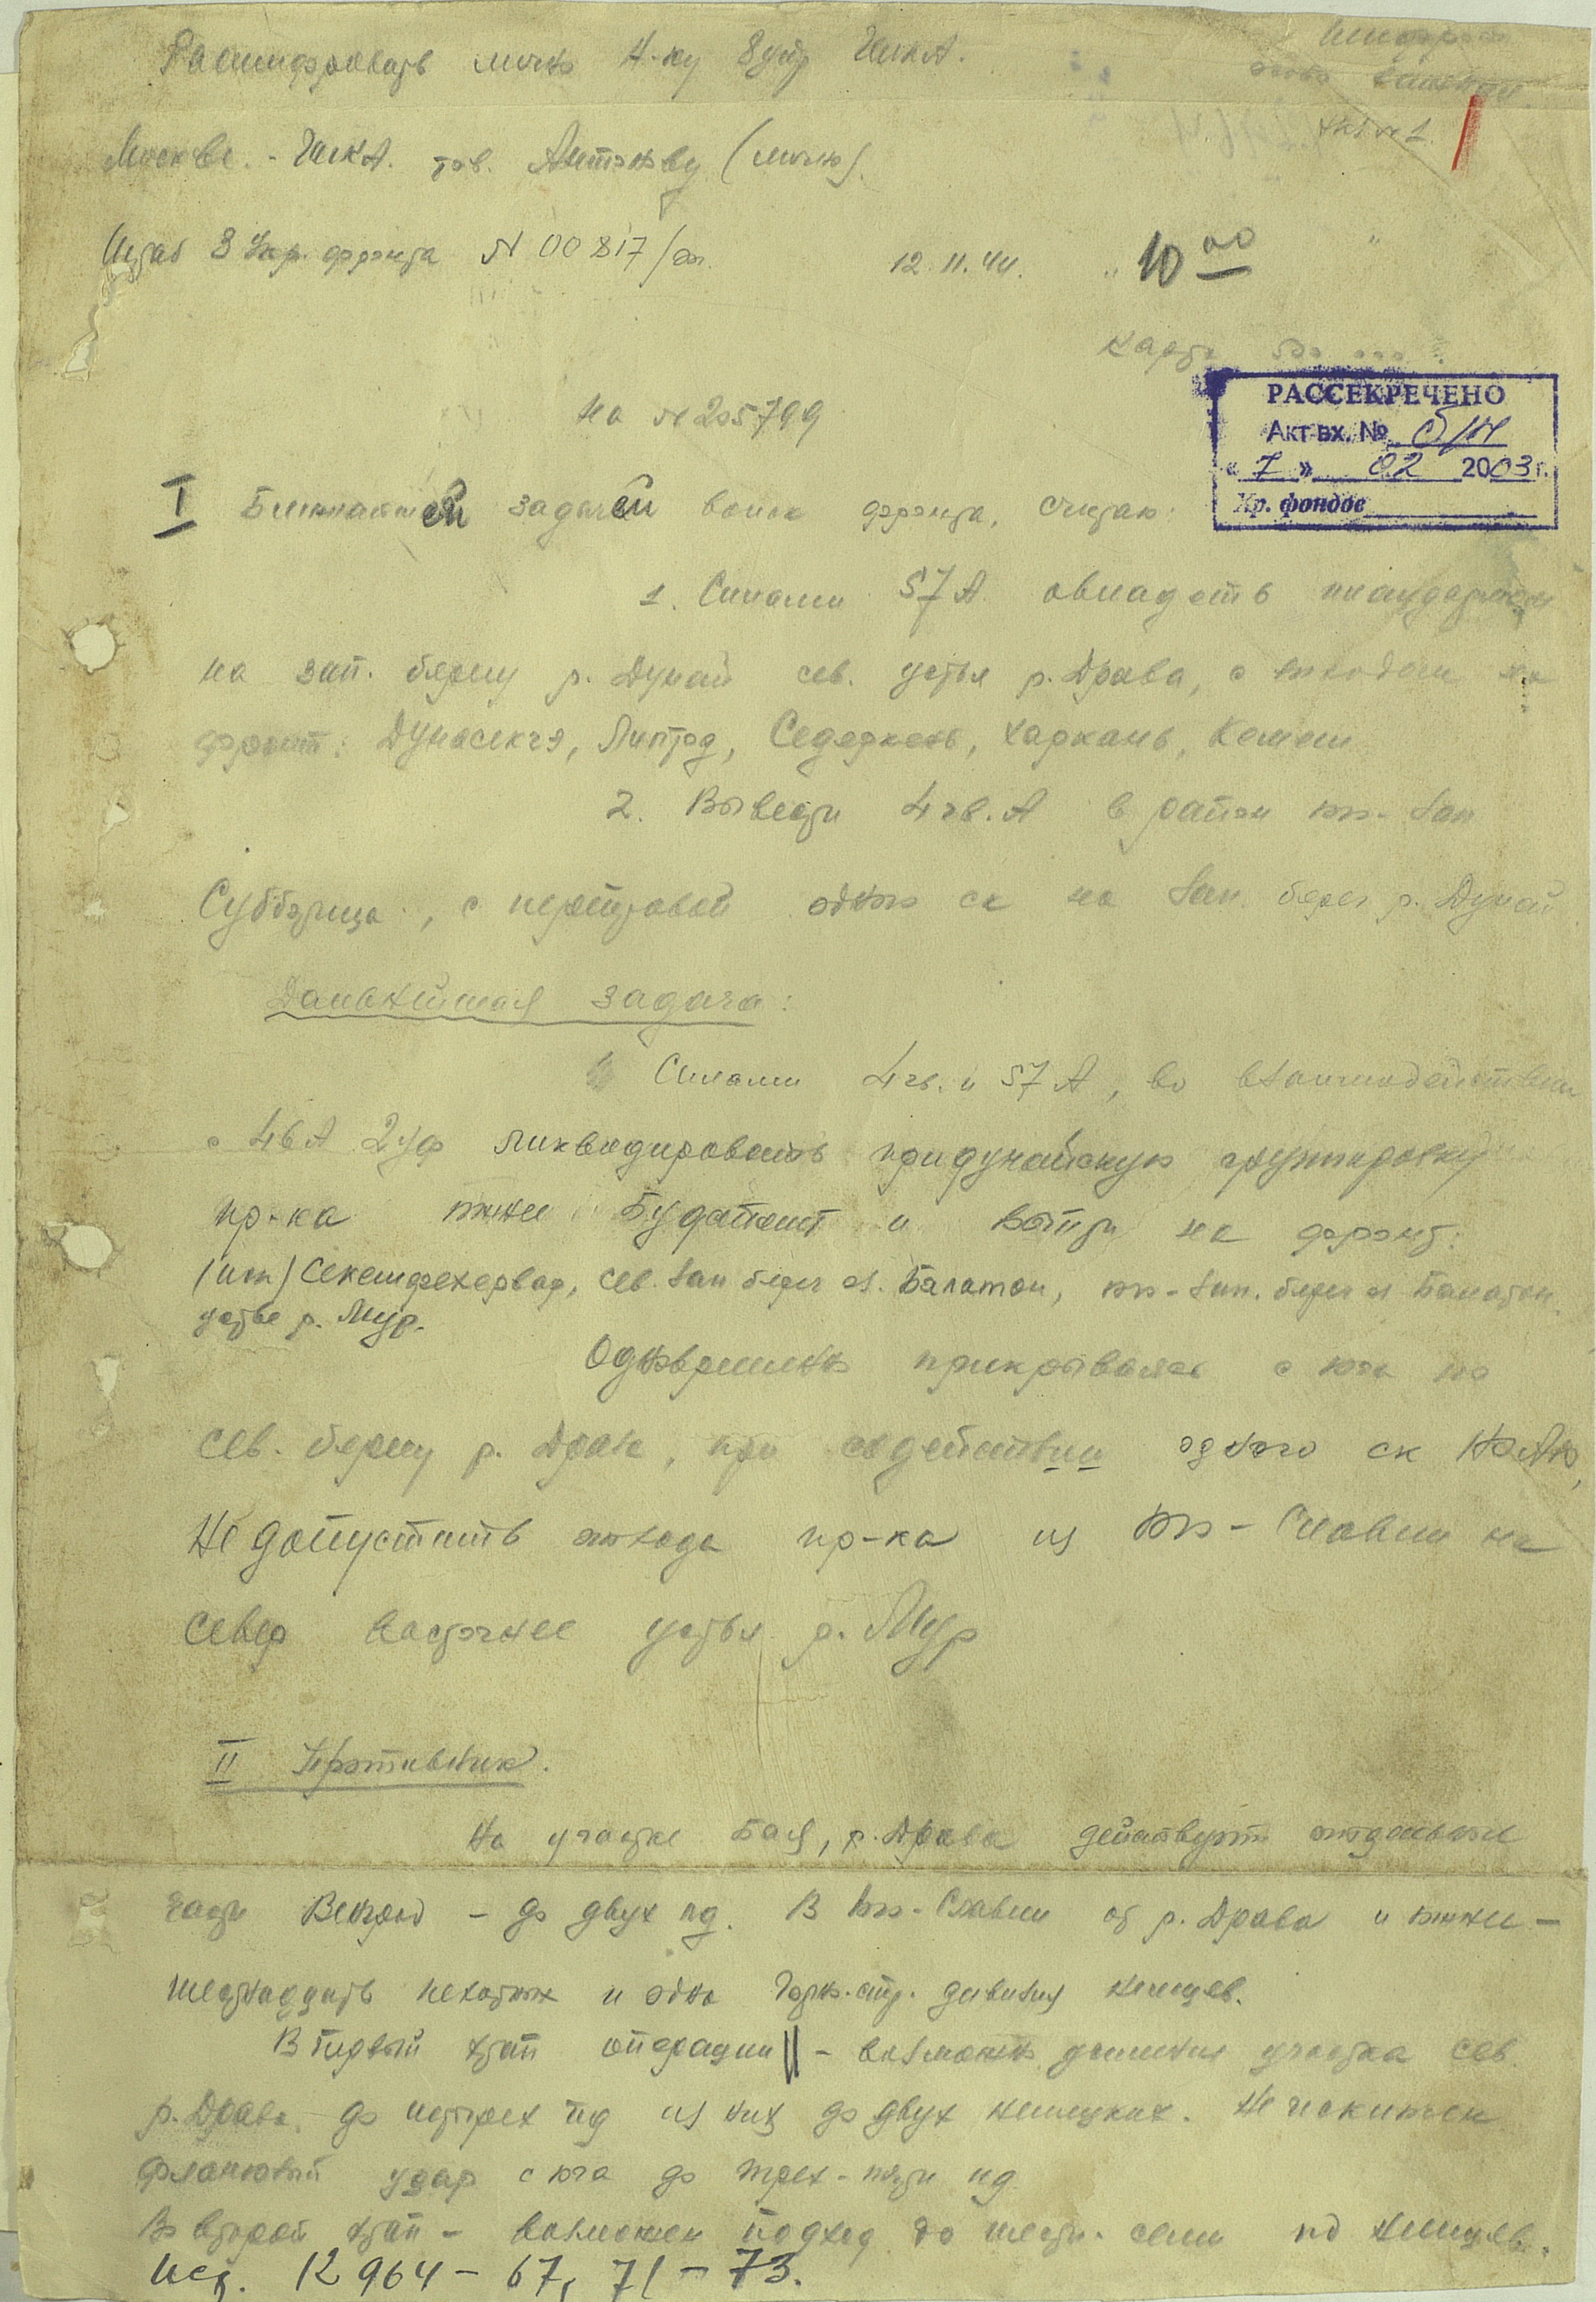 Расшифровать лично Н-ку 8 упр ГШКА.
Шифром
Экз № 1
Москва. - ГШКА. тов. Антонову (лично).
Штаб 3 Укр. фронта № 00817/оп. 12.11.44. "10 00"
Карта
РАССЕКРЕЧЕНО
Акт вх. № б/н
« 7 » 02 2003 г.
Хр. фондов
На № 205799
I Ближайшей задачей войск фронта, считаю:
1. Силами 57 А овладеть плацдармом
на зап. берегу р. Дунай сев. устья р. Драва, с выходом на
фронт: Дунасекчэ, Липтод, Седеркень, Харкань, Кемеш
2. Вывести 4 гв. А в район юго-зап
Субботица, с переправой одного ск на зап. берег р. Дунай
Дальнейшая задача:
Силами 4 гв. и 57 А, во взаимодействии
с 46 А 2 УФ ликвидировать придунайскую группировку
пр-ка южнее Будапешт и выйти на фронт:
(иск) Секешфехервар, сев. зап берег оз. Балатон, юго-зап. берег оз Балатон,
устье р. Мур.
Одновременно прикрываясь с юга по
сев. берегу р. Драва, при содействии одного ск НОАЮ,
Не допустить отхода пр-ка из Юго-Славии на
север восточнее устья р. Мур
II Противник.
На участке Байя, р. Драва действуют отдельные
части Венгров - до двух пд. В Юго-Славии от р. Драва и южнее -
шестнадцать пехотных и одна Горно-стр. дивизия немцев.
В первый этап операции - возможно усиление участка сев.
р. Драва до четырех пд из них до двух немецких. Не исключен
фланговый удар с юга до трех-пяти пд
Во второй этап - возможен подход до шести-семи пд немцев.
Исх. 12964 - 67, 71 - 73.